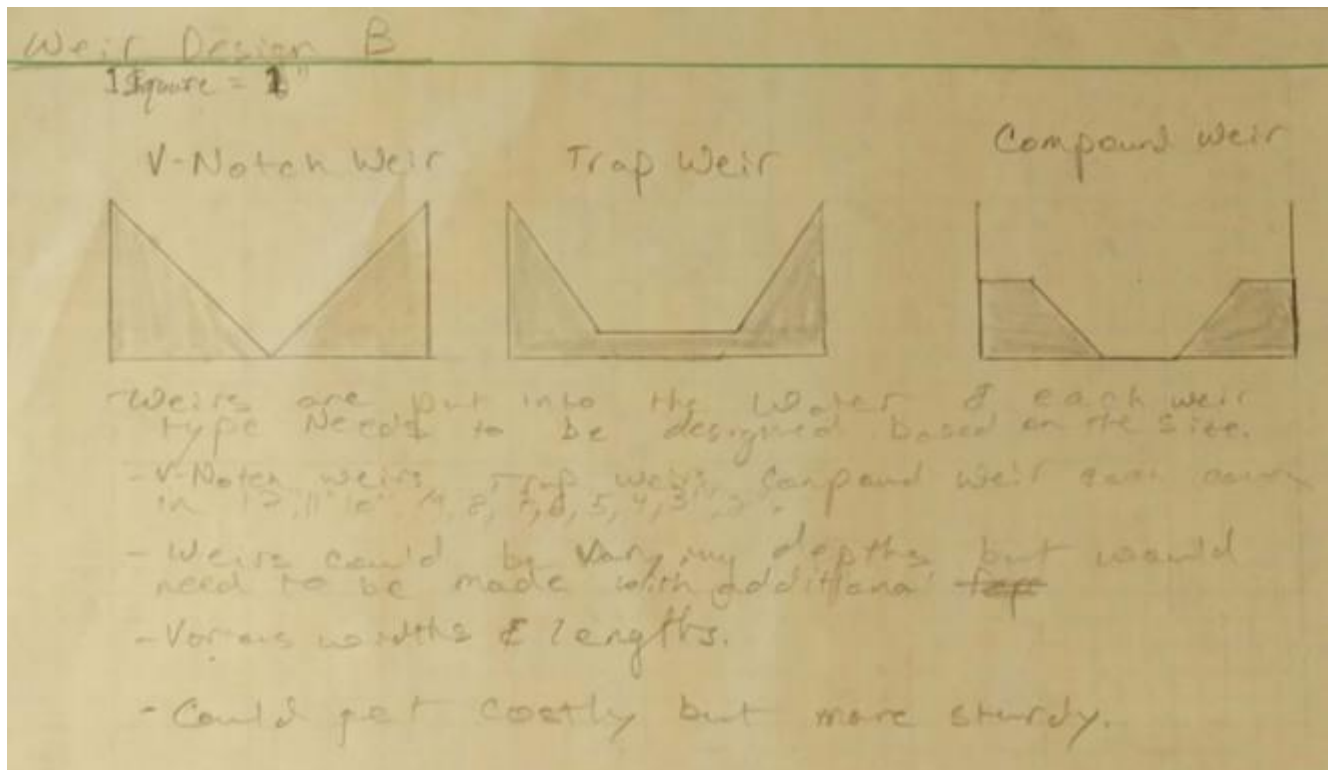 Weir Design B
1 Square = 1"
V-Notch Weir
Trap Weir
Compound Weir
-Weirs are put into the Water & each weir
type Needs to be designed based on the Size.
-V-Notch weirs, Trap weirs, Compound Weir each
in 12", 11" 10" 9, 8, 7, 6, 5, 4, 3"
-Weirs could be varying depths but would
need to be made with additional
-Various widths & lengths.
-Could get costly but more sturdy.